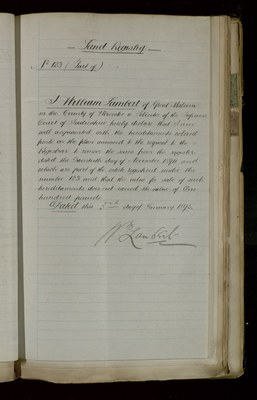 Land Registry
No 183 (Part of)
I William Lambert of Great Malvern
in the County of Worcester a Solicitor of the Supreme
Court of Judicature hereby declare that I am
well acquainted with the hereditaments colored
pink on the plan annexed to the request to the
Registrar to remove the same from the register
dated the day of November 189 and
which are part of the estate registered under the
number 183 and that the value for sale of such
hereditaments does not exceed the value of One
hundred pounds
Dated this day of January 189
Wm Lambert